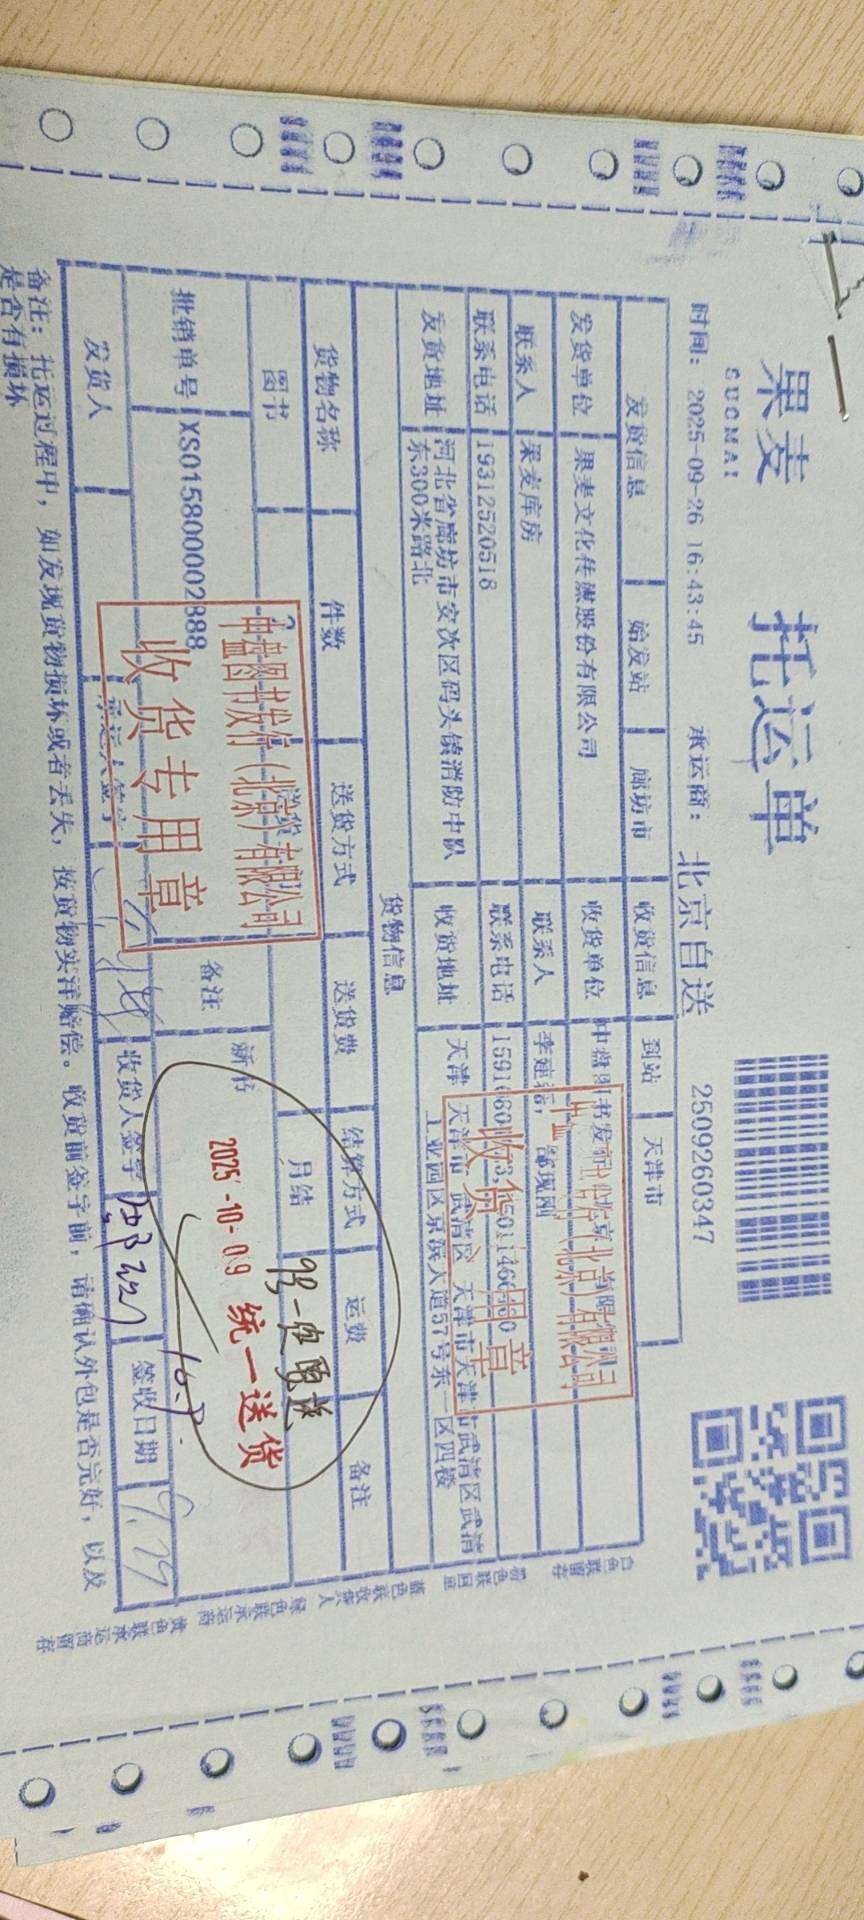 果麦
GUOMAI
托运单
2509260347
时间: 2025-09-26 16:43:45 承运商: 北京自送
发货信息 始发站 廊坊市 收货信息 到站 天津市
发货单位 果麦文化传媒股份有限公司 收货单位 中盘图书发行(北京)有限公司
联系人 果麦库房 联系人
联系电话 19312520518 联系电话
发货地址 河北省廊坊市安次区码头镇消防中队东300米路北 收货地址 天津 天津市 武清区 天津市天津市武清区武清工业园区京滨大道57号东一区四楼
货物信息
货物名称 件数 送货方式 送货费 结算方式 运费 备注
图书 2 送货 月结
批销单号 XS0158000002888 备注 新书
发货人 承运人签字 收货人签字 签收日期 9.29
备注: 托运过程中, 如发现货物损坏或者丢失, 按货物实洋赔偿。收货前签字前, 请确认外包是否完好, 以及是否有损坏
中盘图书发行(北京)有限公司
收货专用章
中盘图书发行(北京)有限公司
收货专用章
2025-10-09 统一送货
白色联留存
蓝色联收货人
绿色联承运商
黄色联承运商留存